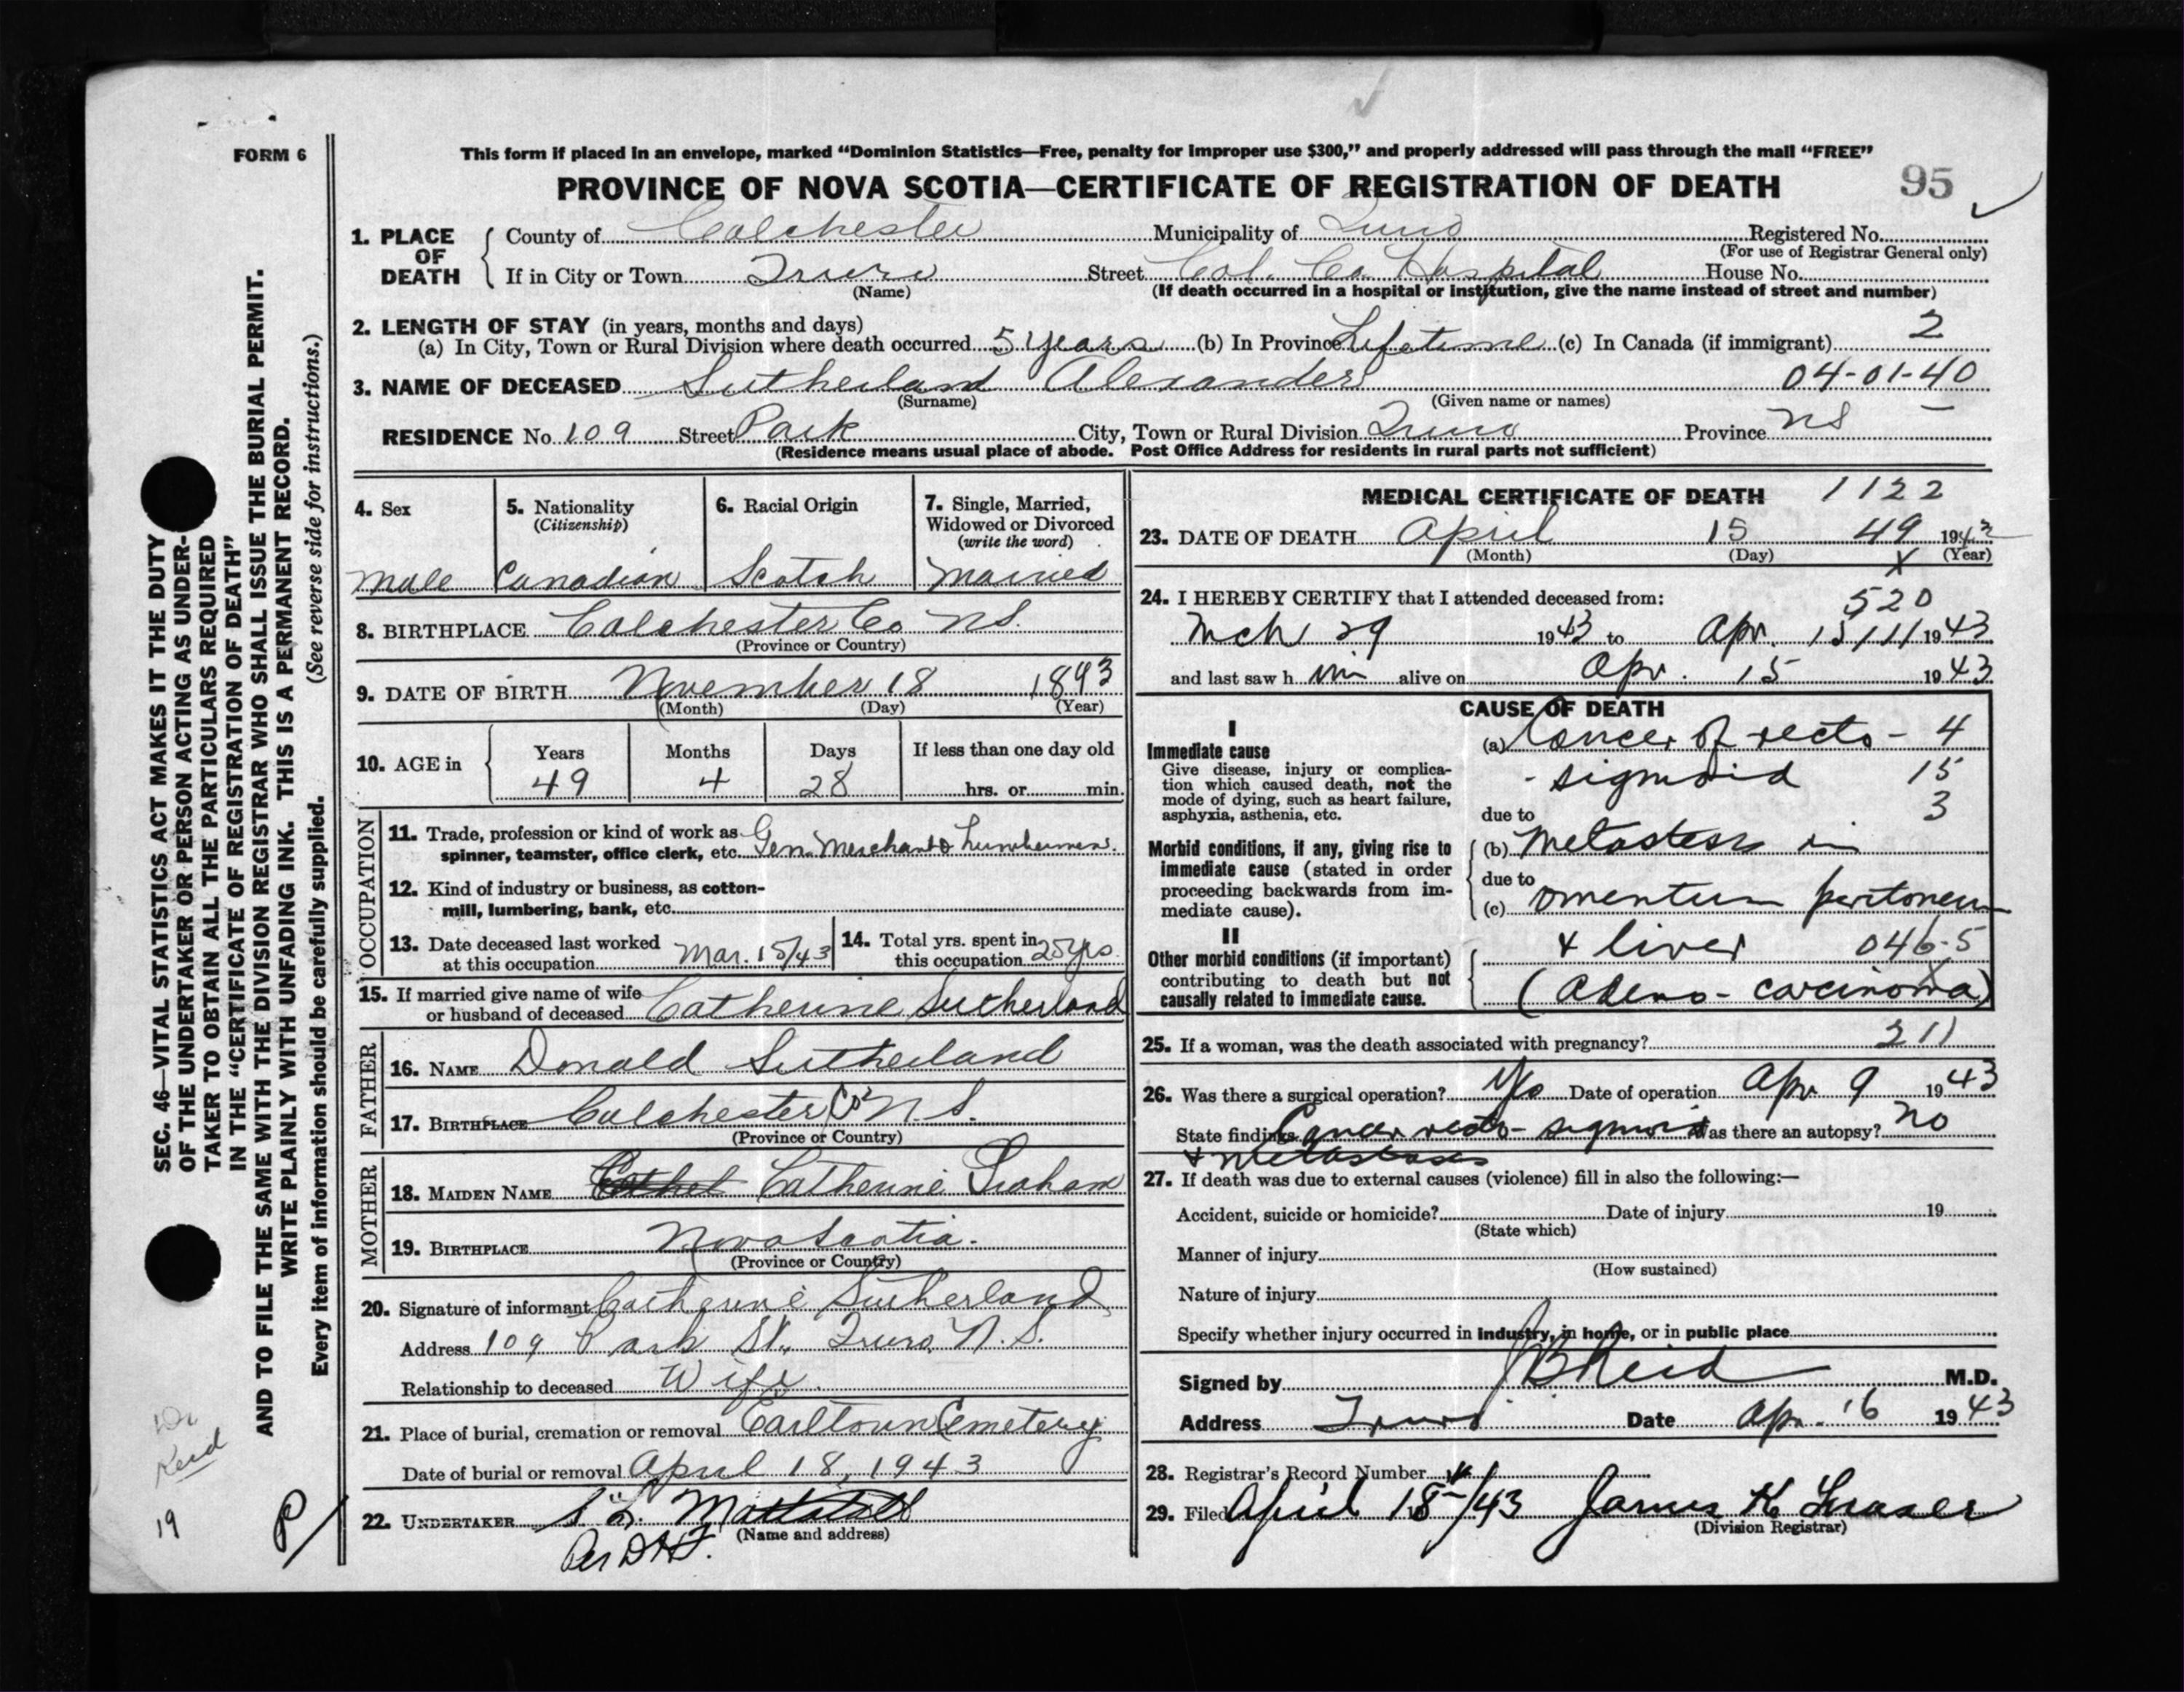 FORM 6
This form if placed in an envelope, marked “Dominion Statistics—Free, penalty for improper use $300,” and properly addressed will pass through the mail “FREE”
PROVINCE OF NOVA SCOTIA—CERTIFICATE OF REGISTRATION OF DEATH 95
1. PLACE OF DEATH
County of Colchester Municipality of Truro Registered No.
(For use of Registrar General only)
If in City or Town Truro Street Col. Co. Hospital House No.
(Name) (If death occurred in a hospital or institution, give the name instead of street and number)
2. LENGTH OF STAY (in years, months and days) 2
(a) In City, Town or Rural Division where death occurred 5 years (b) In Province Lifetime (c) In Canada (if immigrant)
3. NAME OF DECEASED Sutherland Alexander 04-01-40
(Surname) (Given name or names)
RESIDENCE No. 109 Street Park City, Town or Rural Division Truro Province NS —
(Residence means usual place of abode. Post Office Address for residents in rural parts not sufficient)
4. Sex
male
5. Nationality
(Citizenship)
Canadian
6. Racial Origin
Scotch
7. Single, Married,
Widowed or Divorced
(write the word)
married
8. BIRTHPLACE Colchester Co NS.
(Province or Country)
9. DATE OF BIRTH November 18 1893
(Month) (Day) (Year)
10. AGE in
Years Months Days If less than one day old
49 4 28 hrs. or min.
OCCUPATION
11. Trade, profession or kind of work as
spinner, teamster, office clerk, etc. Gen. Merchant & Lumberman.
12. Kind of industry or business, as cotton-
mill, lumbering, bank, etc.
13. Date deceased last worked
at this occupation Mar. 15/43
14. Total yrs. spent in
this occupation 25 yrs.
15. If married give name of wife
or husband of deceased Catherine Sutherland
FATHER
16. NAME Donald Sutherland
17. BIRTHPLACE Colchester Co N.S.
(Province or Country)
MOTHER
18. MAIDEN NAME Catherine Graham
19. BIRTHPLACE Nova Scotia.
(Province or Country)
20. Signature of informant Catherine Sutherland
Address 109 Park St., Truro, N.S.
Relationship to deceased Wife.
21. Place of burial, cremation or removal Earltown Cemetery
Date of burial or removal April 18, 1943
22. UNDERTAKER Mattatall
(Name and address)
MEDICAL CERTIFICATE OF DEATH 1122
23. DATE OF DEATH April 15 49 1943
(Month) (Day) X (Year)
24. I HEREBY CERTIFY that I attended deceased from: 520
Mch 29 1943 to Apr. 15/11/1943
and last saw him alive on Apr. 15 1943
CAUSE OF DEATH
I
Immediate cause
Give disease, injury or complica-
tion which caused death, not the
mode of dying, such as heart failure,
asphyxia, asthenia, etc.
(a) Cancer of recto- 4
- sigmoid 15
due to 3
Morbid conditions, if any, giving rise to
immediate cause (stated in order
proceeding backwards from im-
mediate cause).
(b) Metastases in
due to
(c) omentum peritoneum
II
Other morbid conditions (if important)
contributing to death but not
causally related to immediate cause.
& liver 046-5
X
(Adeno-carcinoma)
25. If a woman, was the death associated with pregnancy? 211
26. Was there a surgical operation? Yes Date of operation Apr 9 1943
State findings Cancer recto-sigmoid Was there an autopsy? no
& metastases
27. If death was due to external causes (violence) fill in also the following:—
Accident, suicide or homicide? Date of injury 19
(State which)
Manner of injury
(How sustained)
Nature of injury
Specify whether injury occurred in industry, in home, or in public place
Signed by J B Reid M.D.
Address Truro Date Apr. 16 1943
28. Registrar's Record Number
29. Filed April 18/43 James H Fraser
(Division Registrar)
SEC. 46—VITAL STATISTICS ACT MAKES IT THE DUTY
OF THE UNDERTAKER OR PERSON ACTING AS UNDER-
TAKER TO OBTAIN ALL THE PARTICULARS REQUIRED
IN THE “CERTIFICATE OF REGISTRATION OF DEATH”
AND TO FILE THE SAME WITH THE DIVISION REGISTRAR WHO SHALL ISSUE THE BURIAL PERMIT.
WRITE PLAINLY WITH UNFADING INK. THIS IS A PERMANENT RECORD.
Every item of information should be carefully supplied. (See reverse side for instructions.)
Dr
Reid
19
P/